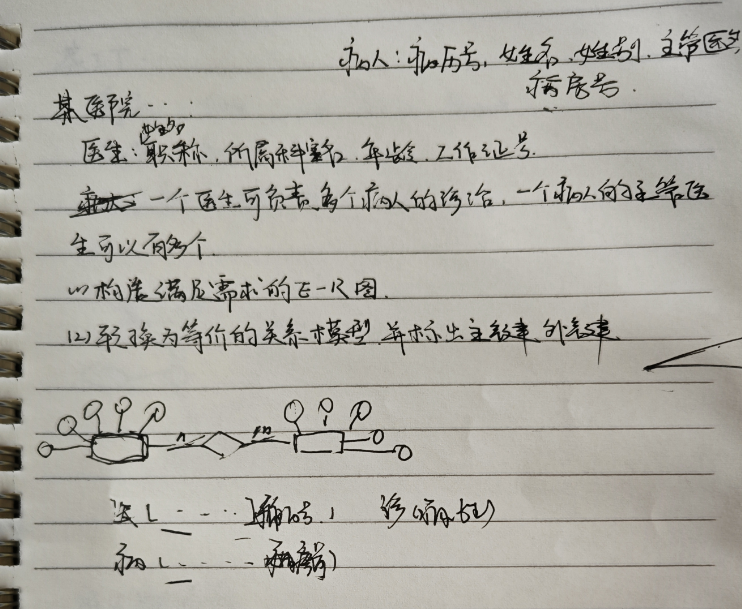 病人：病历号，姓名，性别，主管医生
病房号.
某医院…：
医生：姓名，职称，所属科室名，年龄，工作证号.
一个医生可负责多个病人的诊治，一个病人的主管医
生可以有多个.
(1) 构造满足需求的E-R图.
(2) 转换为等价的关系模型，并标出主键，外键
n m
医(
病(